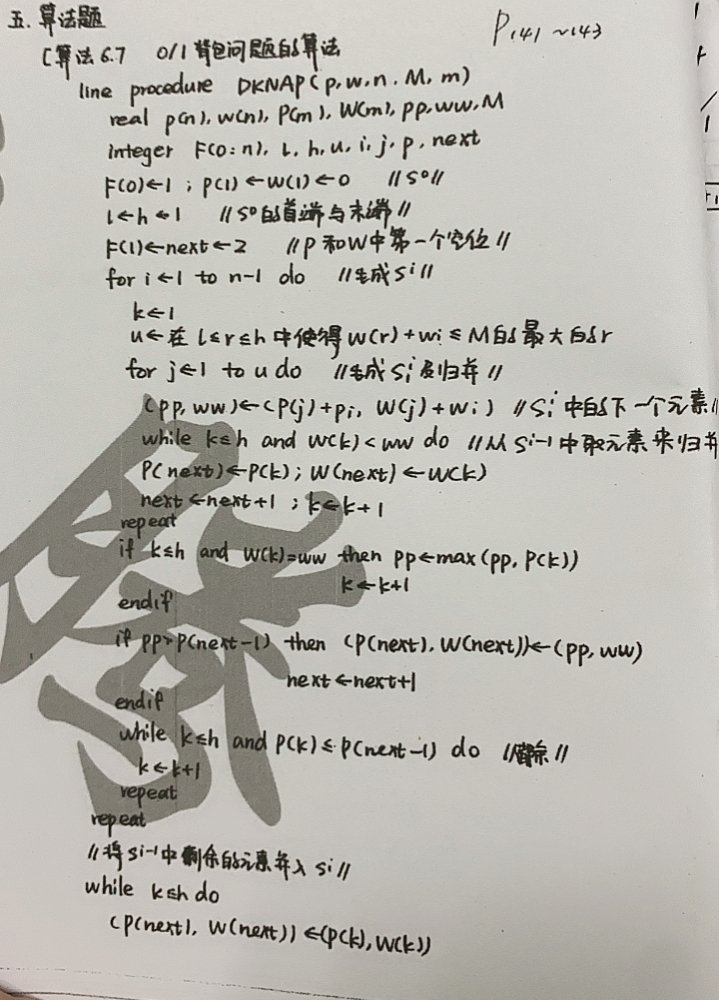 五. 算法题
P141~143
C算法6.7 0/1背包问题的算法
line procedure DKNAP(p,w,n,M,m)
real p(n), w(n), P(m), W(m), pp, ww, M
integer F(0:n), l, h, u, i, j, p, next
F(0)←1 ; P(1)←W(1)←0 //S⁰//
l←h←1 //S⁰的首端与末端//
F(1)←next←2 //P和W中第一个空位//
for i←1 to n-1 do //生成Si//
k←1
u←在l≤r≤h中使得W(r)+wi≤M的最大的r
for j←1 to u do //生成Si及归并//
(pp, ww)←(P(j)+pi, W(j)+wi) //Si中的下一个元素//
while k≤h and W(k)<ww do //从Si-1中取元素来归并
P(next)←P(k); W(next)←W(k)
next←next+1 ; k←k+1
repeat
if k≤h and W(k)=ww then pp←max(pp, P(k))
k←k+1
endif
if pp>P(next-1) then (P(next), W(next))←(pp, ww)
next←next+1
endif
while k≤h and P(k)≤P(next-1) do //清除//
k←k+1
repeat
repeat
//将Si-1中剩余的元素并入Si//
while k≤h do
(P(next), W(next))←(P(k), W(k))